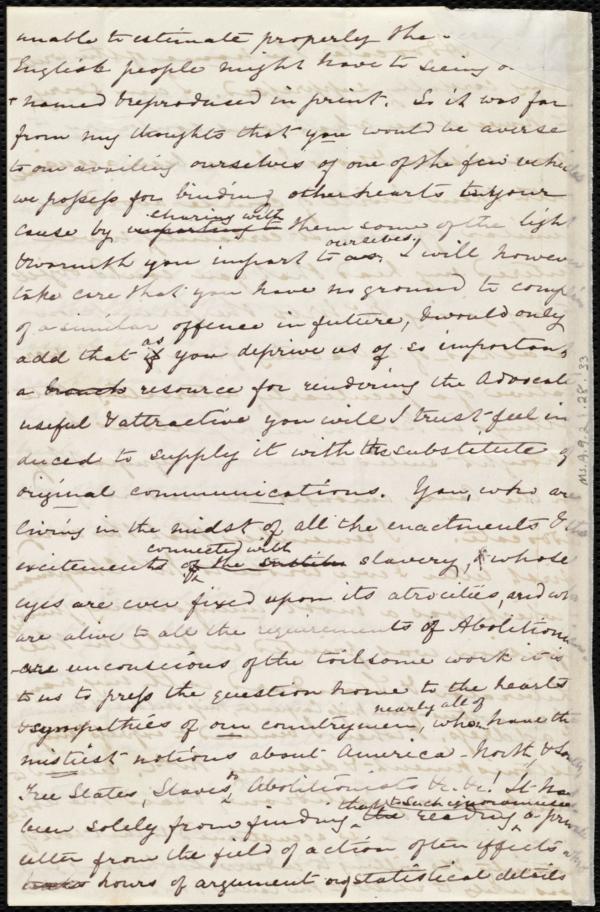 unable to estimate properly the
English people might have to seeing
named & reproduced in print. So it was far
from my thoughts that you would be averse
to our availing ourselves of one of the few vehicles
we possess for binding other hearts to your
cause by imparting to sharing with them some of the light
& warmth you impart to us. ourselves, I will however
take care that you have no ground to complain
of a similar offence in future, & would only
add that if as you deprive us of so important
a branch resource for rendering the Advocate
useful & attractive you will I trust feel in
duced to supply it with the substitute of
original communications. You, who are
living in the midst of all the enactments & the
excitements of the connected with slavery, & whose
eyes are ever fixed upon its atrocities, and who
are alive to all the requirements of Abolitionism
are unconscious of the toilsome work it is
to us to press the question home to the hearts
& sympathies of our countrymen, nearly all of who have the
mistiest notions about America - North, & South,
Free States, Slaves, Abolitionists &c. &c! It has
been solely from finding that to such ignoramuses the reading a private
letter from the field of action often effects
hours of argument or statistical details
Ms.A.9.2 1.28.33